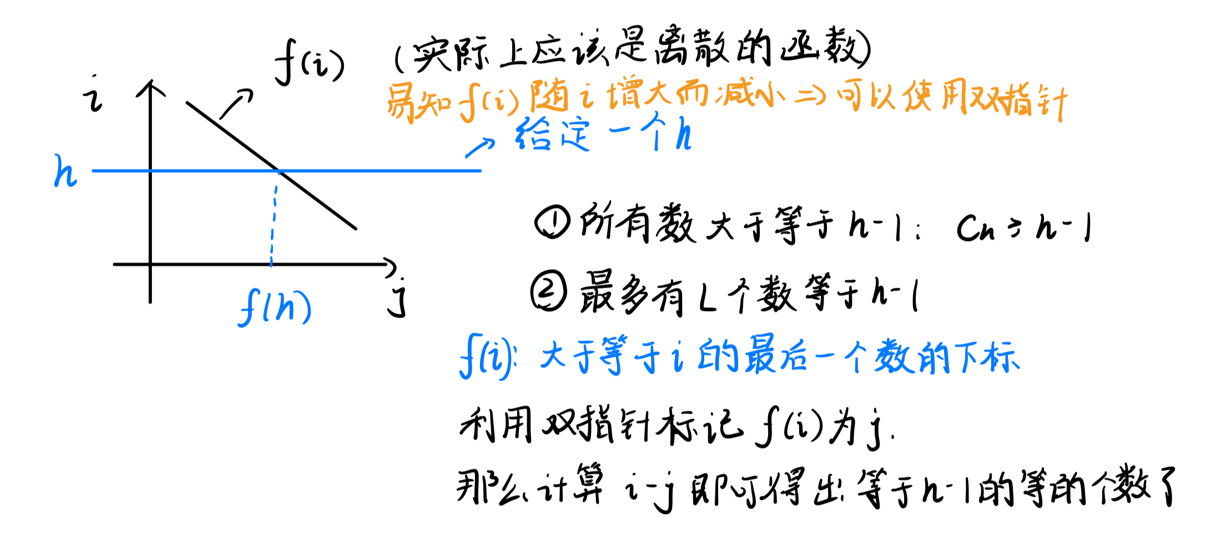 f(i) (实际上应该是离散的函数)
i
易知f(i)随i增大而减小=>可以使用双指针
给定一个h
h
①所有数大于等于h-1: Ch≥h-1
②最多有L个数等于h-1
f(h)
j
f(i): 大于等于i的最后一个数的下标
利用双指针标记f(i)为j.
那么计算i-j即可得出等于h-1的等的个数了